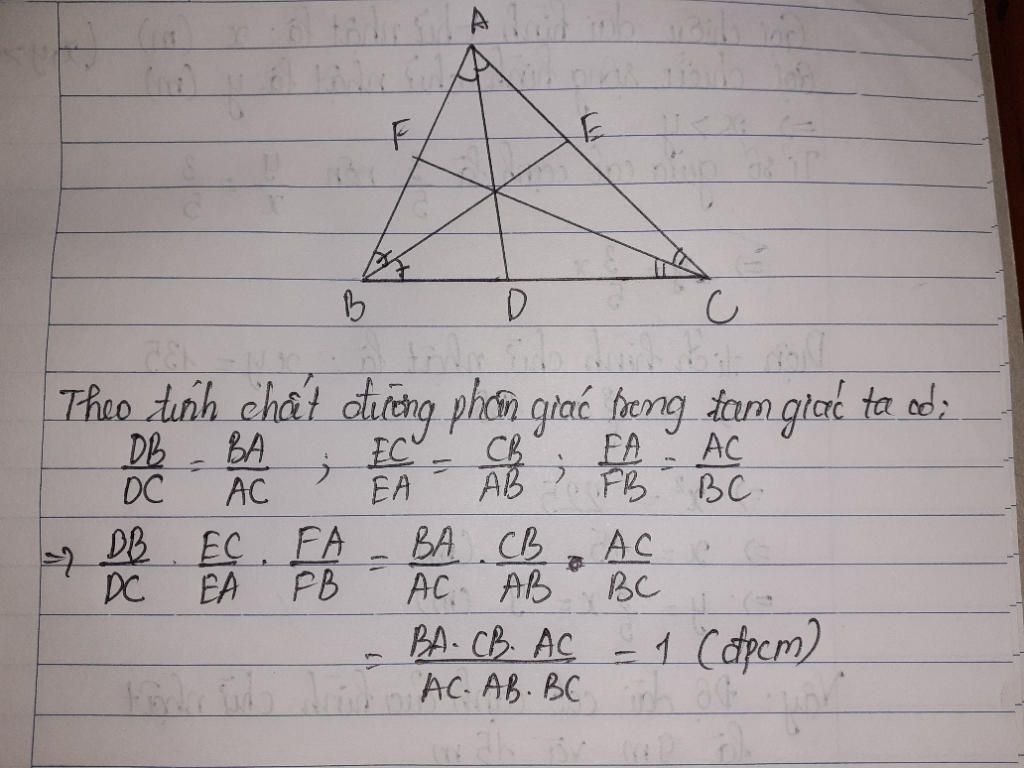 A
F
E
B
D
C
Theo tính chất đường phân giác trong tam giác ta có:
DB/DC = BA/AC ; EC/EA = CB/AB ; FA/FB = AC/BC
=> DB/DC . EC/EA . FA/FB = BA/AC . CB/AB . AC/BC
= BA. CB. AC / AC. AB. BC = 1 (đpcm)